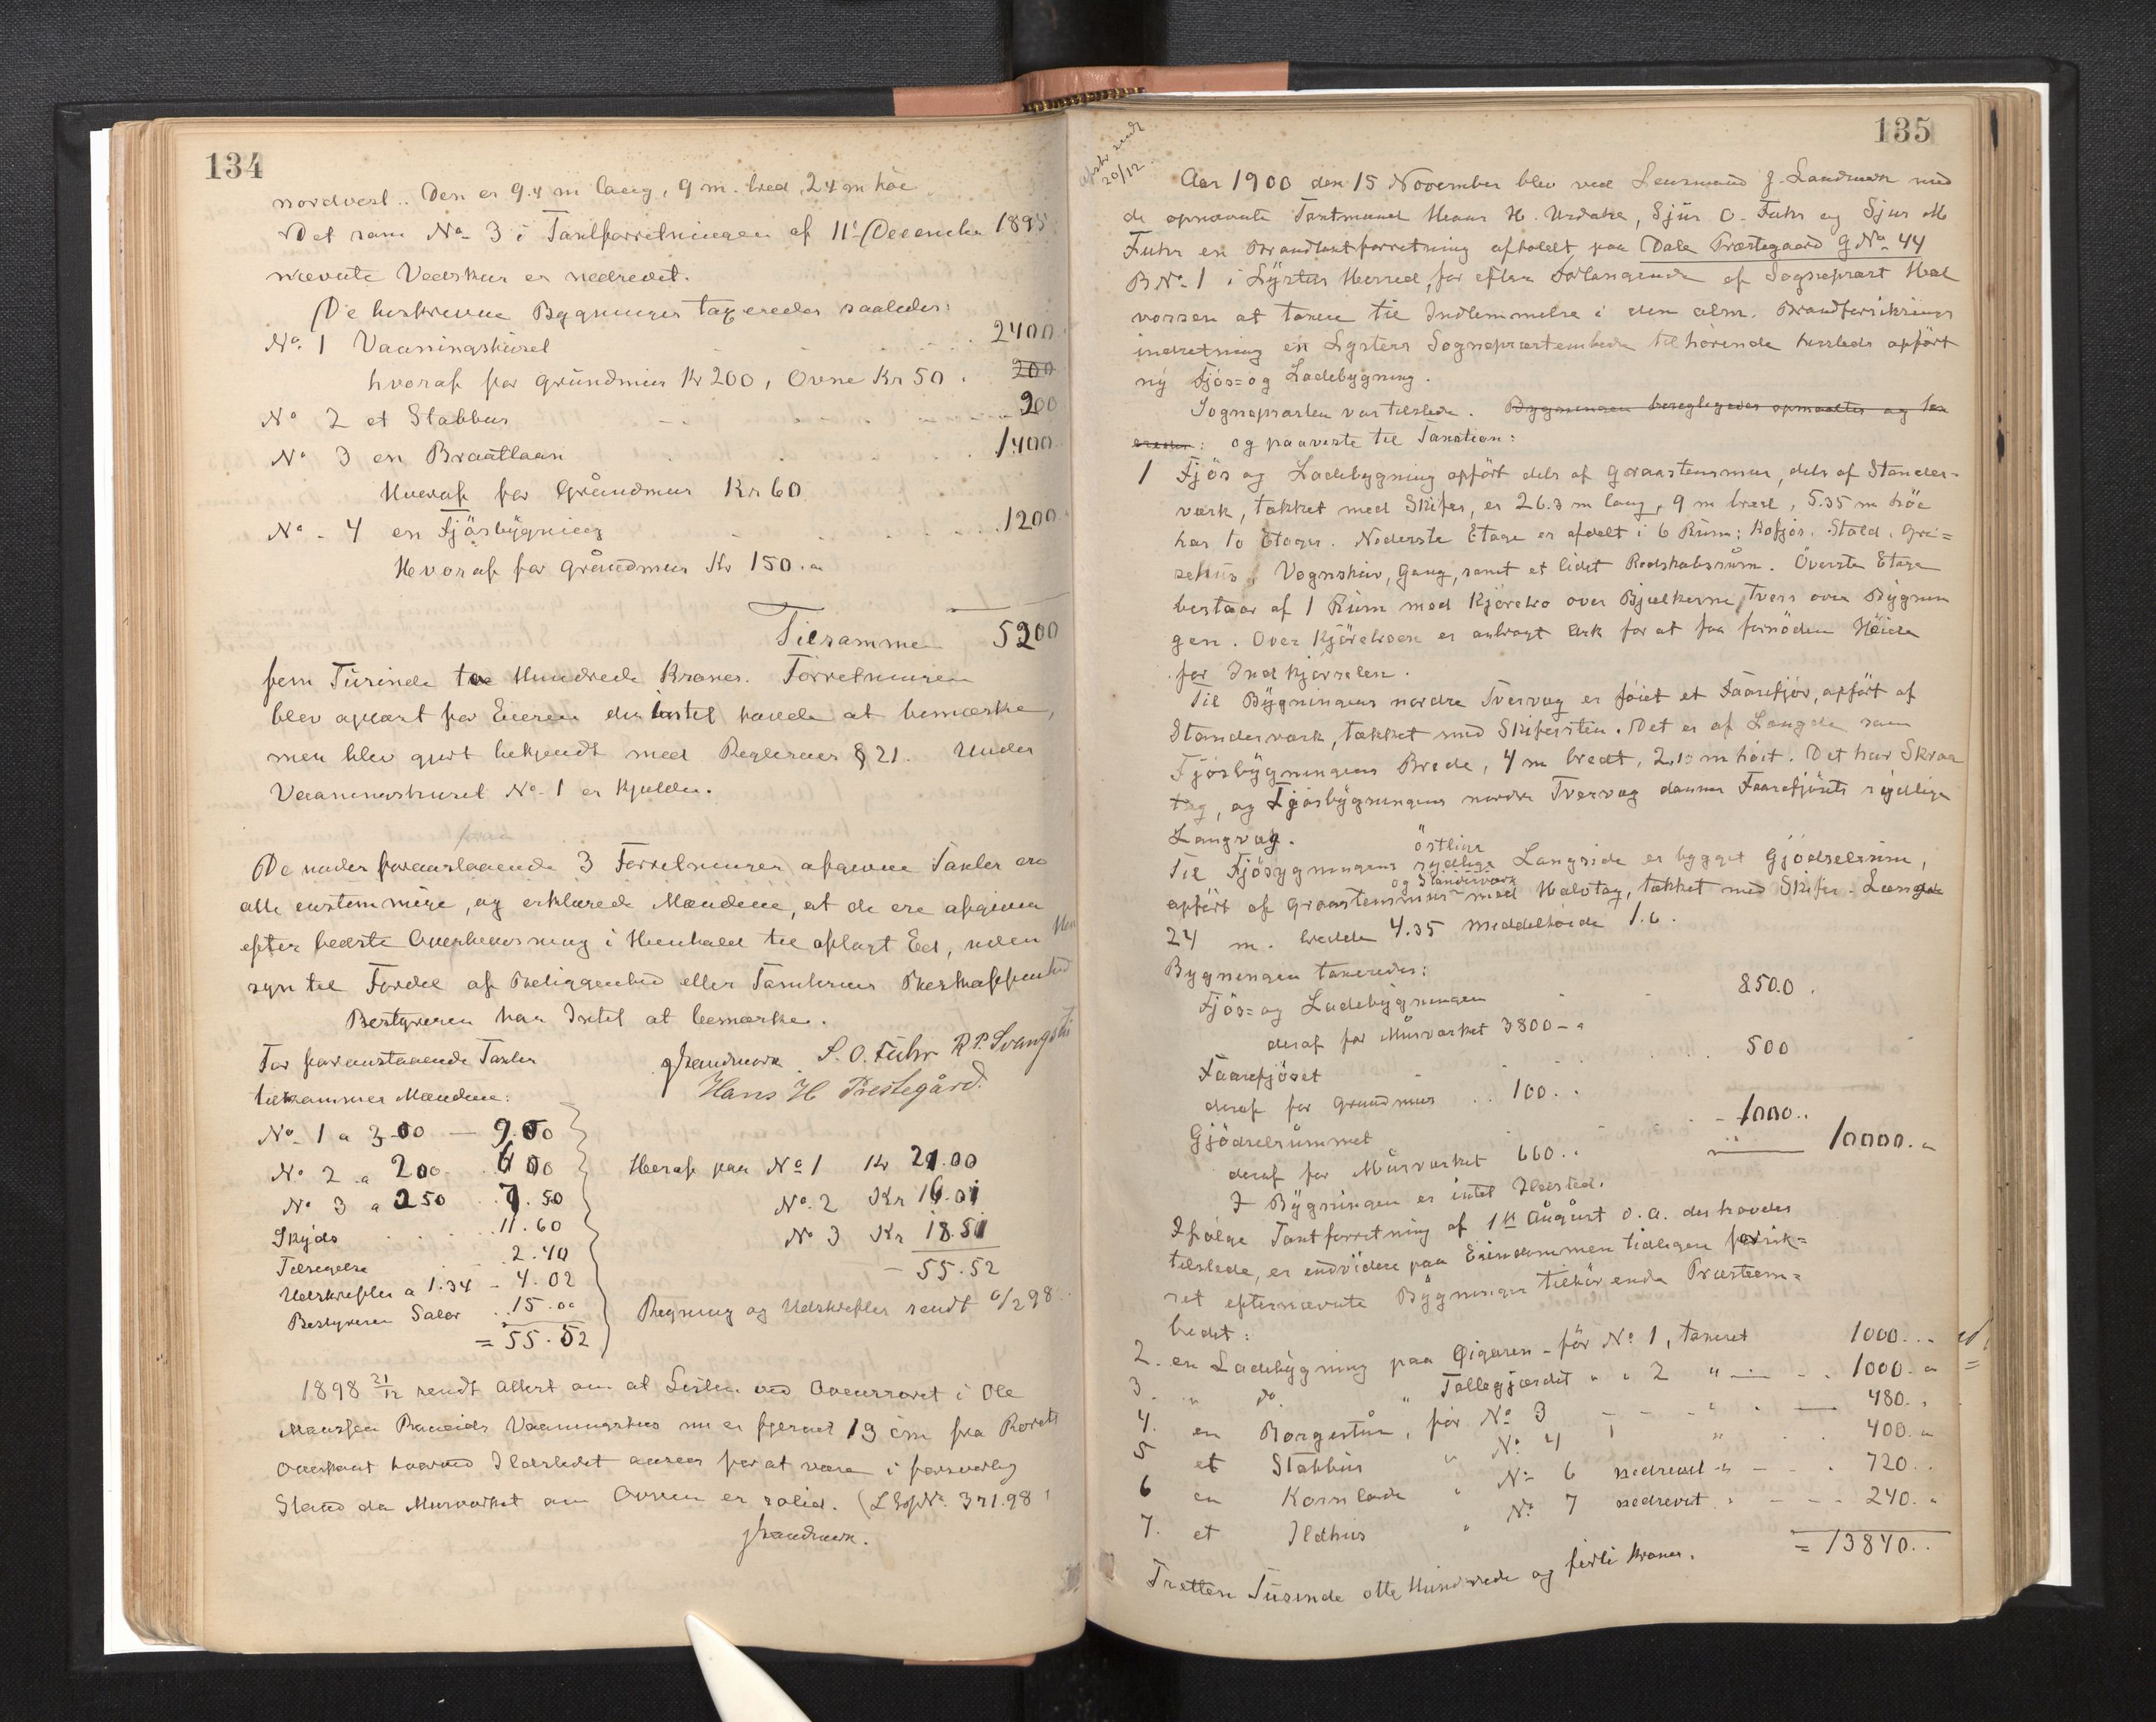 134
nordvest.. Den er 9.4 m lang, 9 m. bred, 2.4 m höi
Det som No 3 i Taxtforretningen af 11te December 1895
nævnte Vedskur er nedrevet.
De beskrevne Bygninger taxeredes saaledes:
No. 1 Vaaningshuset 2400
hvoraf for Grundmur Kr 200, Ovne Kr 50. 200
No 2 et Stabbur 200
No 3 en Braatlaan 1400
Hvoraf for Grundmur Kr 60
No. 4 en Fjösbygning 1200
Hvoraf for Grundmur Kr 150.
Tilsammen 5200
fem Tusinde to Hundrede Kroner. Forretningen
blev oplæst for Eieren der Intet havde at bemærke,
men blev gjort bekjendt med Reglernes § 21. Under
Vaaningshuset No. 1 er Kjelder.
De under foranstaaende 3 Forretninger afgivne Taxter ere
alle enstemmige, og erklærede Mændene, at de ere afgivne
efter bedste Overbevisning i Henhold til aflagt Ed, uden Hen
syn til Fordel af Beliggenhed eller Tomternes Beskaffenhed
Bestyreren har Intet at bemærke.
For foranstaaende Taxter
tilkommer Mændene:
JLandmark. S. O. Fuhr R. P. Svang
Hans H Prestegård.
No. 1 a 3.00 — 9.00
No. 2 a 200 6 00
No 3 a 250 7.50
Skyds 11.60
Tilsigelse 2.40
Udskrifter a 1.34 - 4.02
Bestyreren Salær 15.00
= 55.52
Heraf paa No 1 Kr 21.00
No. 2 Kr 16.01
No 3 Kr 18.51
55.52
Regning og Udskrifter sendt 6/2 98
1898 21/12 sendt Attest om at Listen ved Ovnsroret i Ole
Vaaningshus nu er fjernet 19 cm fra Rorets
Overkant hvorved Ildstedet ansees for at være i forsvarlig
Stand da Murværket om Ovnen er solid. (371.98
JLandmark.
135
sendt
20/12
Aar 1900 den 15 November blev ved Lensmand J. Landmark med
de opnævnte Taxtmænd Hans H. Urdahl, Sjur O. Fuhr og Sjur M
Fuhr en Brandtaxtforretning afholdt paa Dale Præstegaard G No. 44
B No. 1 i Lyster Herred, for efter Forlangende af Sogneprest Hal
vorsen at taxere til Indlemmelse i den alm. Brandforsikrings
indretning en Lysters Sogneprestembede tilhörende hersteds opfört
ny Fjös= og Ladebygning.
Sognepresten var tilstede. Bygningen besigtigedes opmaaltes og tax
eredes: og paaviste til Taxation:
1 Fjös og Ladebygning opfört dels af Graastensmur, dels af Stander-
værk, tækket med Skifer, er 26.3 m lang, 9 m bred, 5.35 m höi
har to Etager. Nederste Etage er afdelt i 6 Rum: Kofjös, Stald, Gri=
sehus, Vognskur, Gang, samt et lidet Redskabsrum. Överste Etage
bestaar af 1 Rum med Kjörebro over Bjelkerne tvers over Bygnin
gen. Over Kjörebroen er anbragt Ark for at faa fornöden Höide
for Indkjörselen.
Til Bygningens nordre Tvervæg er föiet et Faarefjös, opfört af
Standerværk, tækket med Skifersten. Det er af Længde som
Fjösbygningens Brede, 4 m bredt, 2.10 m höit. Det har Skraa
tag, og Fjösbygningens nordre Tvervæg danner Faarefjösets sydlige
Langvæg.
östlige
Til Fjösbygningens sydlige Langside er bygget Gjödselrum,
og Standerværk
opfört af Graastensmur med Halvtag, tækket med Skifer. Længde
24 m. bredde 4.35 Middelhöide 1.6.
Bygningen taxeredes:
Fjös= og Ladebygningen 8500.
deraf for Murværket 3800
Faarefjöset 500
deraf for Grundmur 100.
Gjödselrummet 1000.. 10000.
deraf for Murværket 660..
I Bygningen er intet Ildsted.
Ifölge Taxtforretning af 1ste August d. A. der havdes
tilstede, er endvidere paa Eiendommen tidligere forsik=
ret efternævnte Bygninger tilhörende Præsteem=
bedet:
2. en Ladebygning paa Öigaren - för No. 1, taxeret 1000..
3. " do " Tollegjærdet " " 2 " 1000.
4. en Borgestue, för No. 3 480.
5 et Stabbur " No. 4 " 400.
6 en Kornlade " No 6 nedrevet 720..
7. et Ildhus " No. 7 nedrevet 240.
= 13840..
Tretten Tusinde otte Hundrede og firti Kroner.